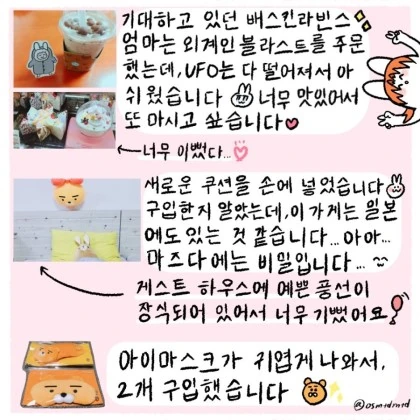 기대하고 있던 배스킨라빈스
엄마는 외계인 블라스트를 주문
했는데, UFO는 다 떨어져서 아
쉬웠습니다 너무 맛있어서
또 마시고 싶습니다
너무 이뻤다...
새로운 쿠션을 손에 넣었습니다
구입한지 알았는데, 이 가게는 일본
에도 있는 것 같습니다... 아아...
마즈다에는 비밀입니다...
게스트 하우스에 예쁜 풍선이
장식되어 있어서 너무 기뻤어요
아이마스크가 귀엽게 나와서,
2개 구입했습니다
@osmidmid